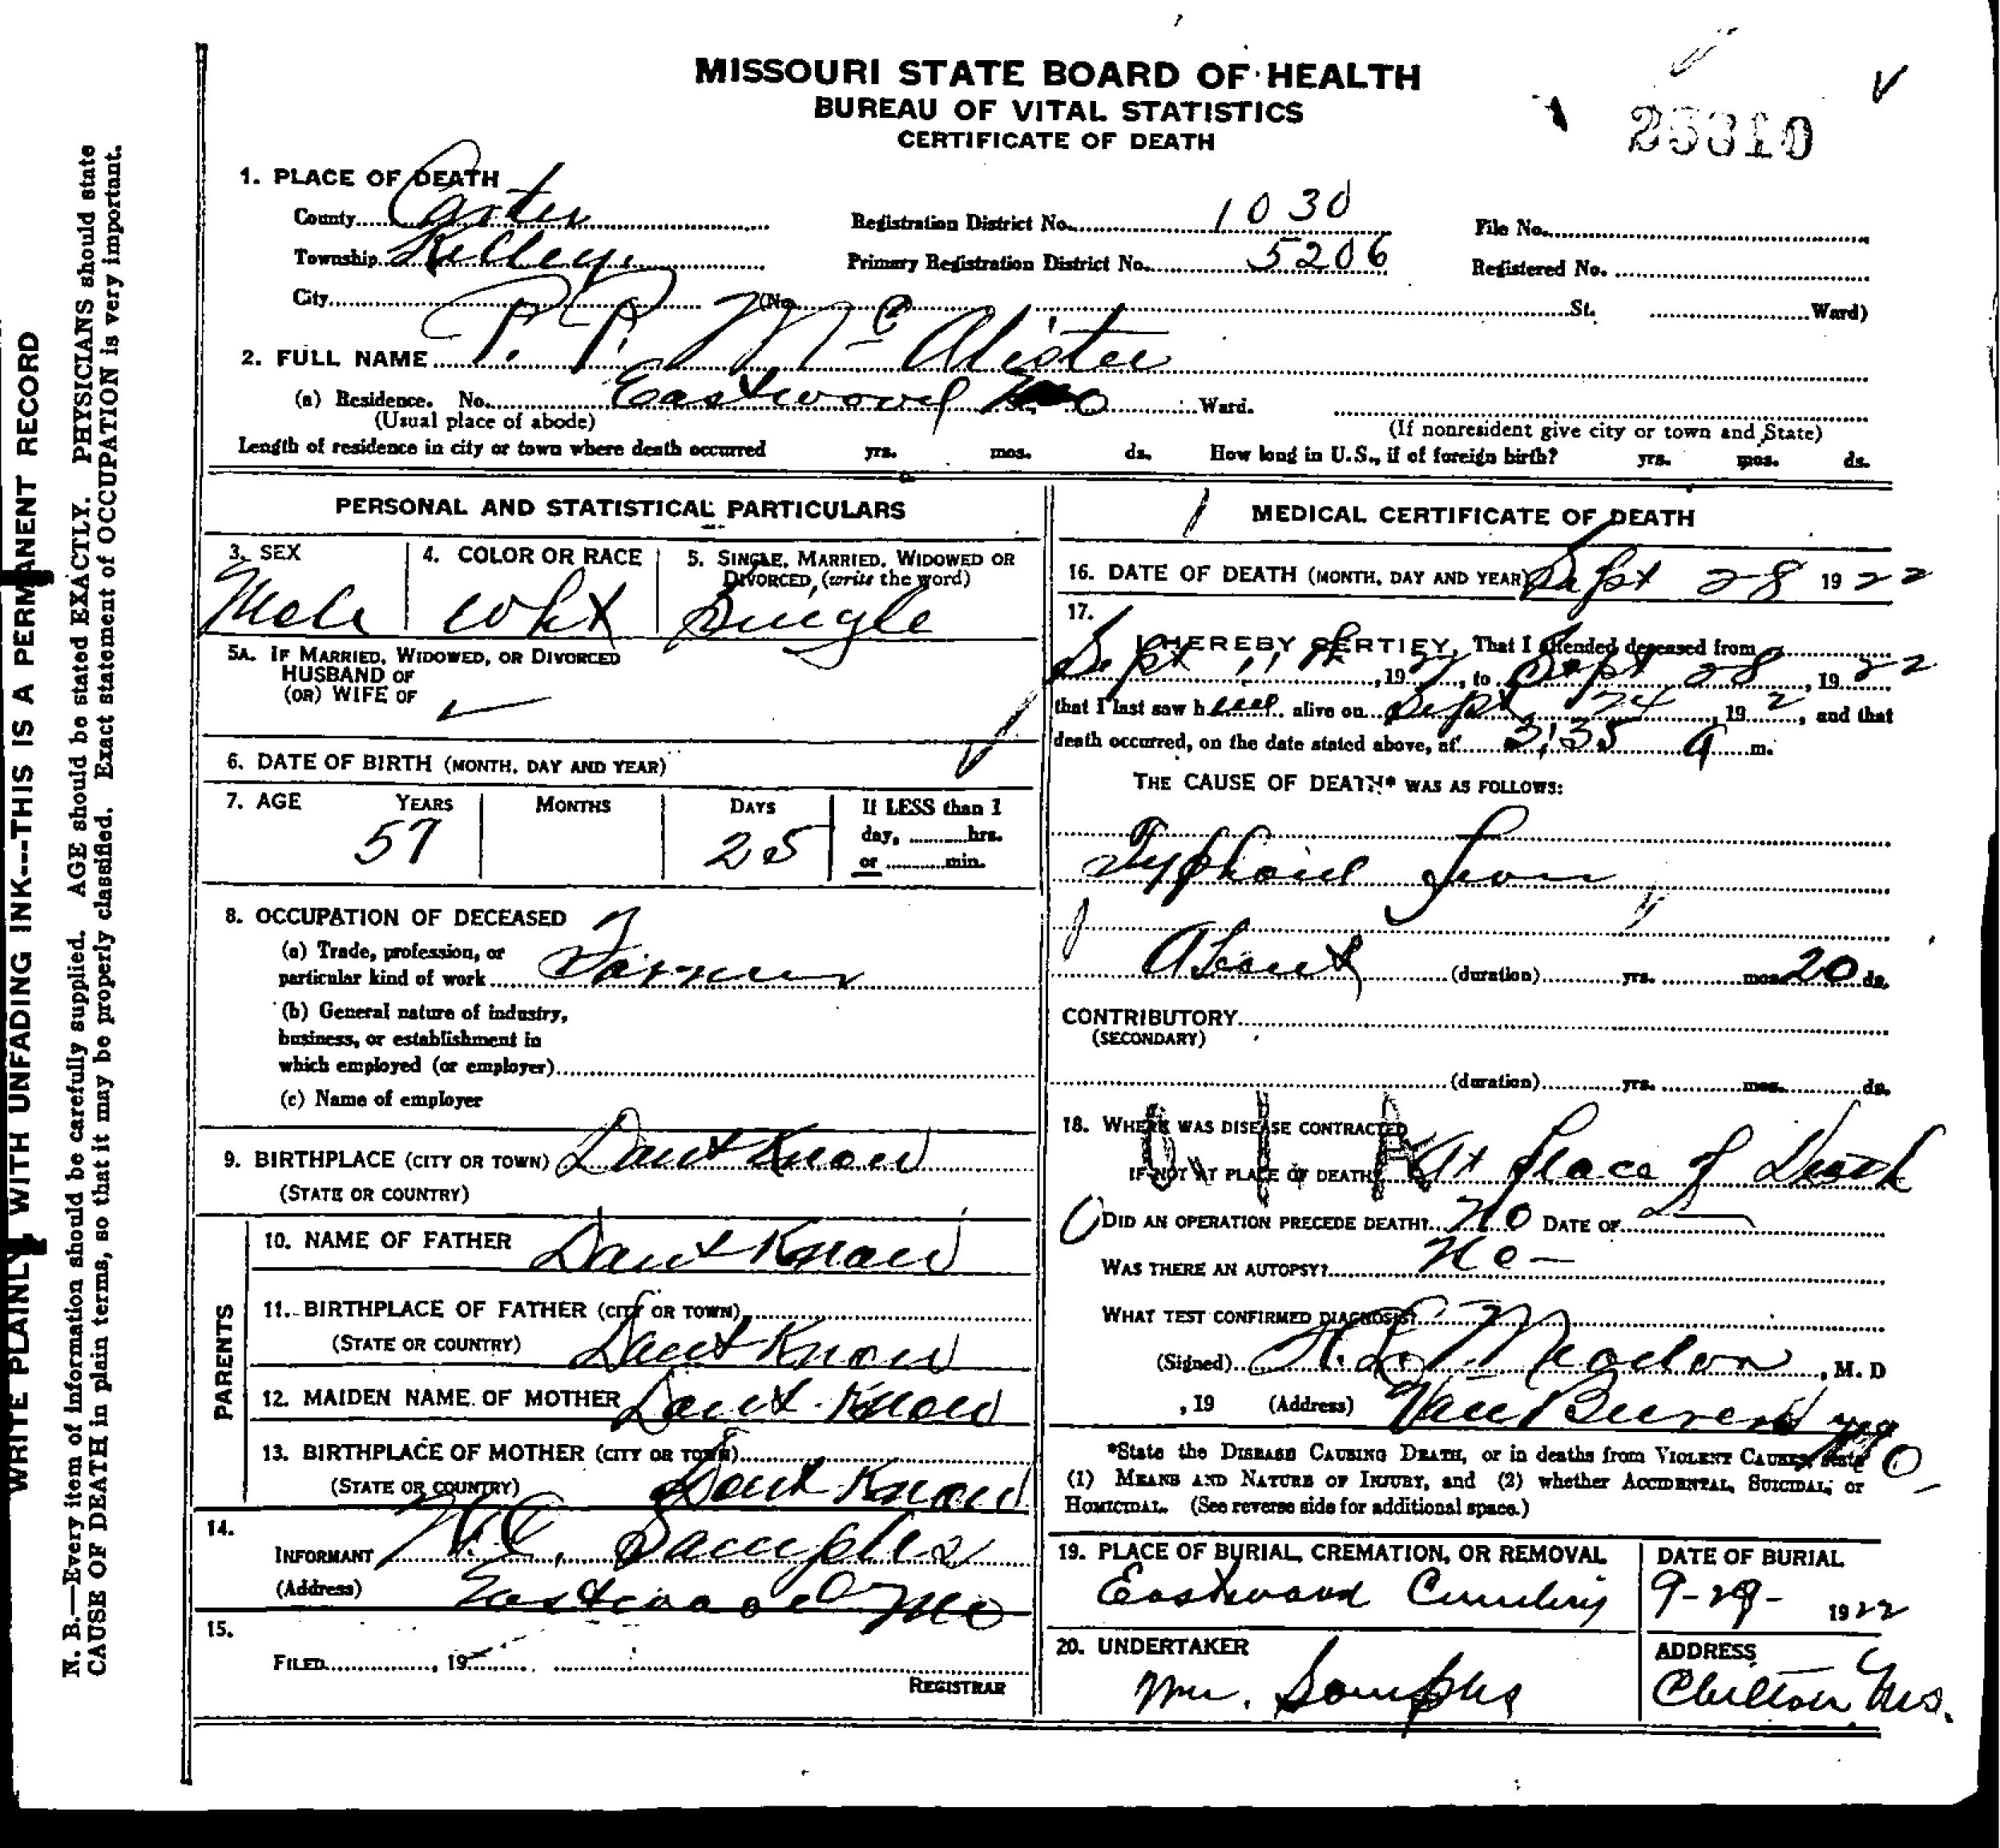 MISSOURI STATE BOARD OF HEALTH
BUREAU OF VITAL STATISTICS
CERTIFICATE OF DEATH
25310
1. PLACE OF DEATH
County Carter Registration District No. 1030 File No.
Township Kelley Primary Registration District No. 5206 Registered No.
City (No. St. Ward)
2. FULL NAME P. P. McAlister
(a) Residence. No. Eastwood Mo Ward.
(Usual place of abode) (If nonresident give city or town and State)
Length of residence in city or town where death occurred yrs. mos. ds. How long in U.S., if of foreign birth? yrs. mos. ds.
PERSONAL AND STATISTICAL PARTICULARS
3. SEX 4. COLOR OR RACE 5. SINGLE, MARRIED, WIDOWED OR
DIVORCED, (write the word)
Male Wht Single
5A. IF MARRIED, WIDOWED, OR DIVORCED
HUSBAND OF
(OR) WIFE OF
6. DATE OF BIRTH (MONTH, DAY AND YEAR)
7. AGE YEARS MONTHS DAYS If LESS than 1
day, hrs.
or min.
57 25
8. OCCUPATION OF DECEASED
(a) Trade, profession, or
particular kind of work Farmer
(b) General nature of industry,
business, or establishment in
which employed (or employer)
(c) Name of employer
9. BIRTHPLACE (CITY OR TOWN) Dont Know
(STATE OR COUNTRY)
PARENTS
10. NAME OF FATHER Dont Know
11. BIRTHPLACE OF FATHER (CITY OR TOWN)
(STATE OR COUNTRY) Dont Know
12. MAIDEN NAME OF MOTHER Dont Know
13. BIRTHPLACE OF MOTHER (CITY OR TOWN)
(STATE OR COUNTRY) Dont Know
14.
INFORMANT W.C. Samples
(Address) Eastwood Mo
15.
FILED , 19
REGISTRAR
MEDICAL CERTIFICATE OF DEATH
16. DATE OF DEATH (MONTH, DAY AND YEAR) Sept 28 1922
17.
I HEREBY CERTIFY, That I attended deceased from
Sept 11th, 192, to Sept 28, 1922
that I last saw h alive on Sept 24, 192, and that
death occurred, on the date stated above, at 3:35 a m.
THE CAUSE OF DEATH* WAS AS FOLLOWS:
Typhoid
About (duration) yrs. mos. 20 ds.
CONTRIBUTORY
(SECONDARY)
(duration) yrs. mos. ds.
18. WHERE WAS DISEASE CONTRACTED
IF NOT AT PLACE OF DEATH? At place of Death
DID AN OPERATION PRECEDE DEATH? No DATE OF
WAS THERE AN AUTOPSY? No -
WHAT TEST CONFIRMED DIAGNOSIS?
(Signed) , M. D
, 19 (Address) Van Buren Mo
*State the DISEASE CAUSING DEATH, or in deaths from VIOLENT CAUSES, state
(1) MEANS AND NATURE OF INJURY, and (2) whether ACCIDENTAL, SUICIDAL, or
HOMICIDAL. (See reverse side for additional space.)
19. PLACE OF BURIAL, CREMATION, OR REMOVAL DATE OF BURIAL
Eastwood 9-29- 1922
20. UNDERTAKER ADDRESS
Wm. Samples Chilton, Mo.
WRITE PLAINLY WITH UNFADING INK---THIS IS A PERMANENT RECORD
N. B.—Every item of information should be carefully supplied. AGE should be stated EXACTLY. PHYSICIANS should state
CAUSE OF DEATH in plain terms, so that it may be properly classified. Exact statement of OCCUPATION is very important.